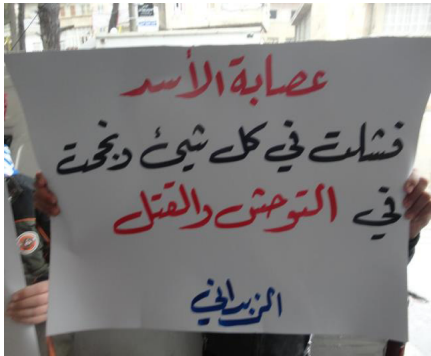 عصابة الأسد
فشلت في كل شيئ ونجحت
في التوحش والقتل
الزبداني